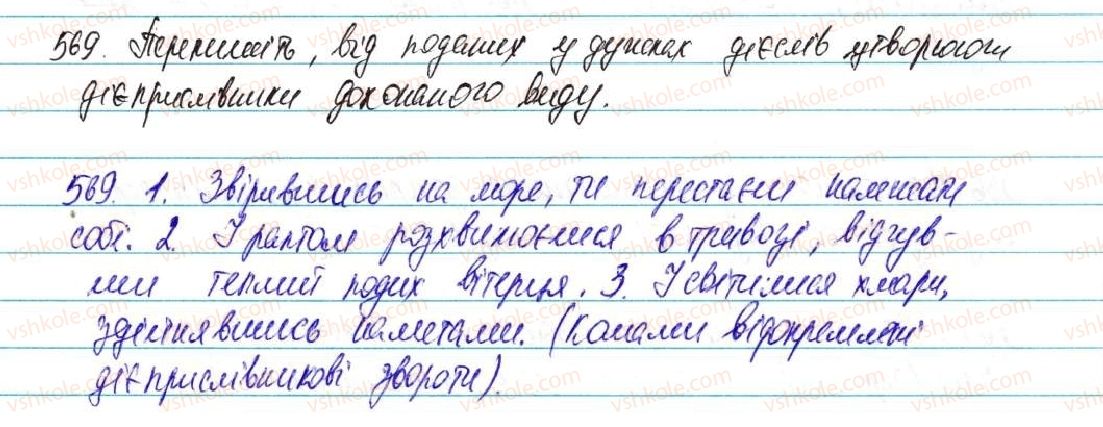 569. Перепишіть, від поданих у дужках дієслів утворюючи
дієприслівники доконаного виду.
569. 1. Звірившись на море, ти перестаєш належати
собі. 2. І раптом розхвилюємися в тривозі, відчув-
ши теплий подих вітерця. 3. І світилися хмари,
здійнявшись наметами. (Комами відокремлені
дієприслівникові звороти).